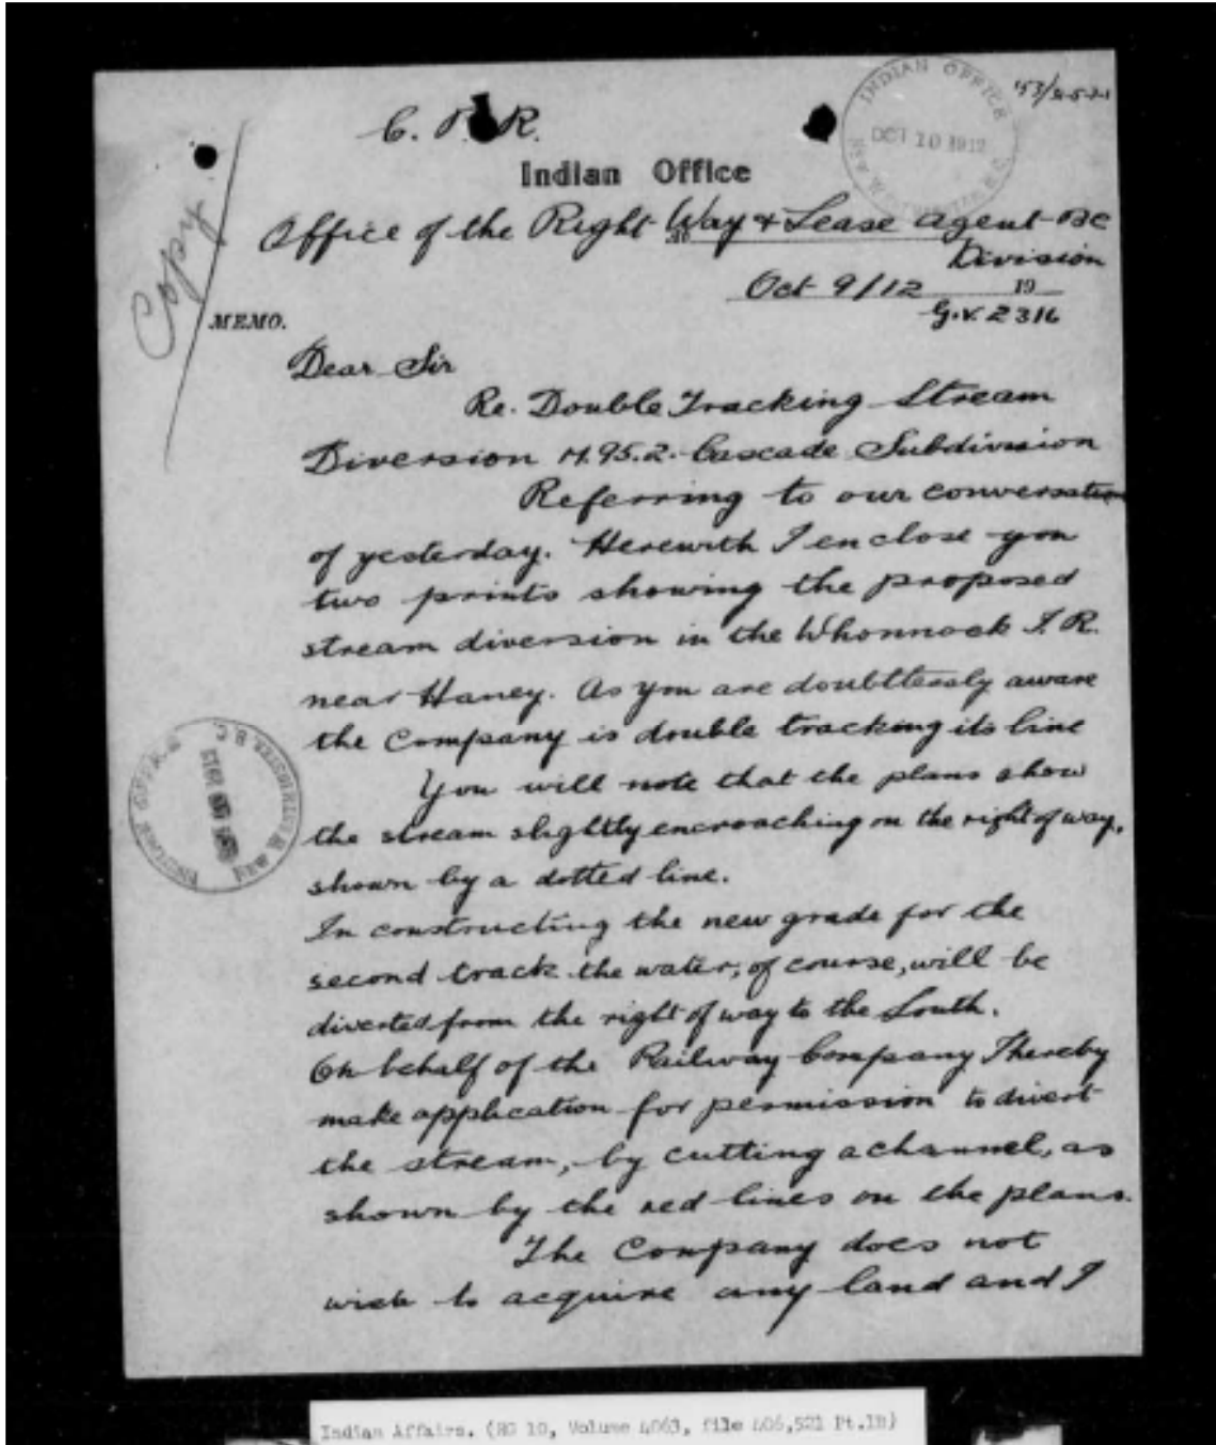 C. P. R.
INDIAN OFFICE
OCT 10 1912
Indian Office
Office of the Right Way & Lease Agent BC
Division
Oct 9/12 19
G.V. 2316
Copy
MEMO.
Dear Sir
Re. Double Tracking Stream
Diversion M.95.2. Cascade Subdivision
Referring to our conversation
of yesterday. Herewith I enclose you
two prints showing the proposed
stream diversion in the Whonnock I.R.
near Haney. As you are doubttlessly aware
the Company is double tracking its line
You will note that the plans show
the stream slightly encroaching on the right of way,
shown by a dotted line.
In constructing the new grade for the
second track the water, of course, will be
diverted from the right of way to the South.
On behalf of the Railway Company I hereby
make application for permission to divert
the stream, by cutting a channel, as
shown by the red lines on the plans.
The Company does not
wish to acquire any land and I
Indian Affairs. (RG 10, Volume 4063, file 406,521 Pt.1B)